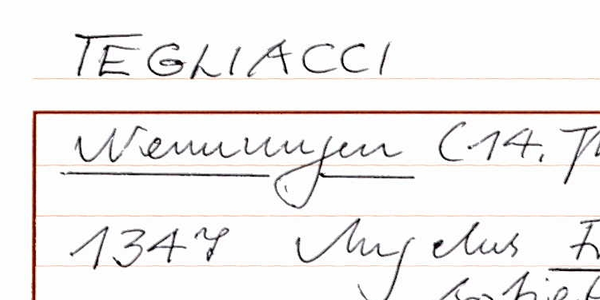 TEGLIACCI
Nennungen (14. Jh
1347 Angelus